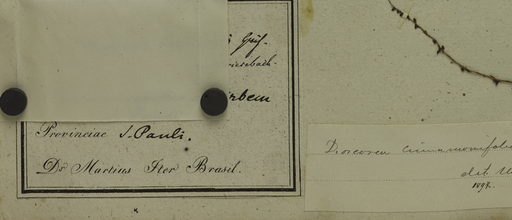 Gris.
Grisebach.
urbem
Provinciae S. Pauli.
Dr Martius Iter Brasil.
Dioscorea cinnamomifolia
det. U
1894.